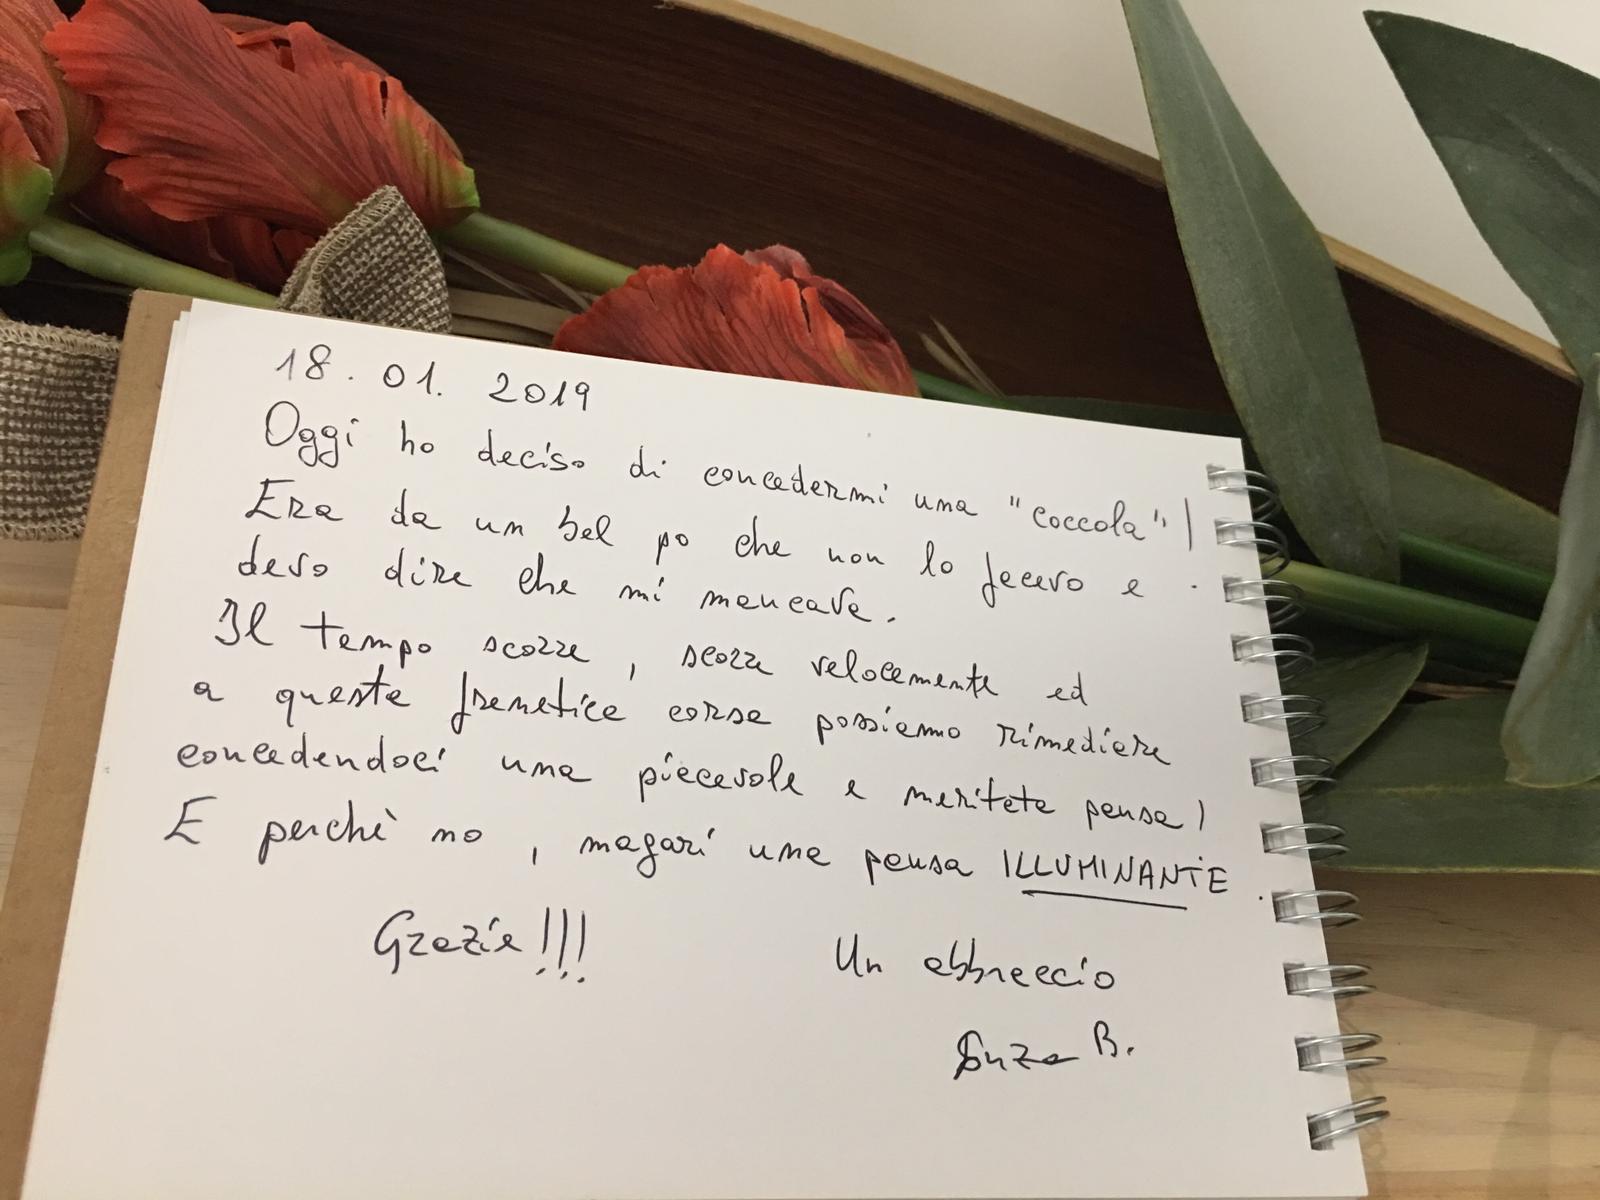 18. 01. 2019
Oggi ho deciso di concedermi una "coccola"!
Era da un bel po che non lo facevo e
devo dire che mi mancava.
Il tempo scorre, scorre velocemente ed
a questa frenetica corsa possiamo rimediare
concedendoci una piacevole e meritata pausa!
E perchè no, magari una pausa ILLUMINANTE.
Grazie!!!
Un abbraccio
B.